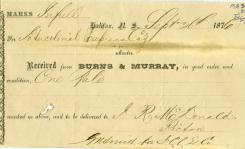 MARKS Infull Halifax, N. S. Sept 21st 1876
Intercolonial Express Co
Received from BURNS & MURRAY, in good order and
condition, One Bale
marked as above, and to be delivered to J R McDonald
Pictou